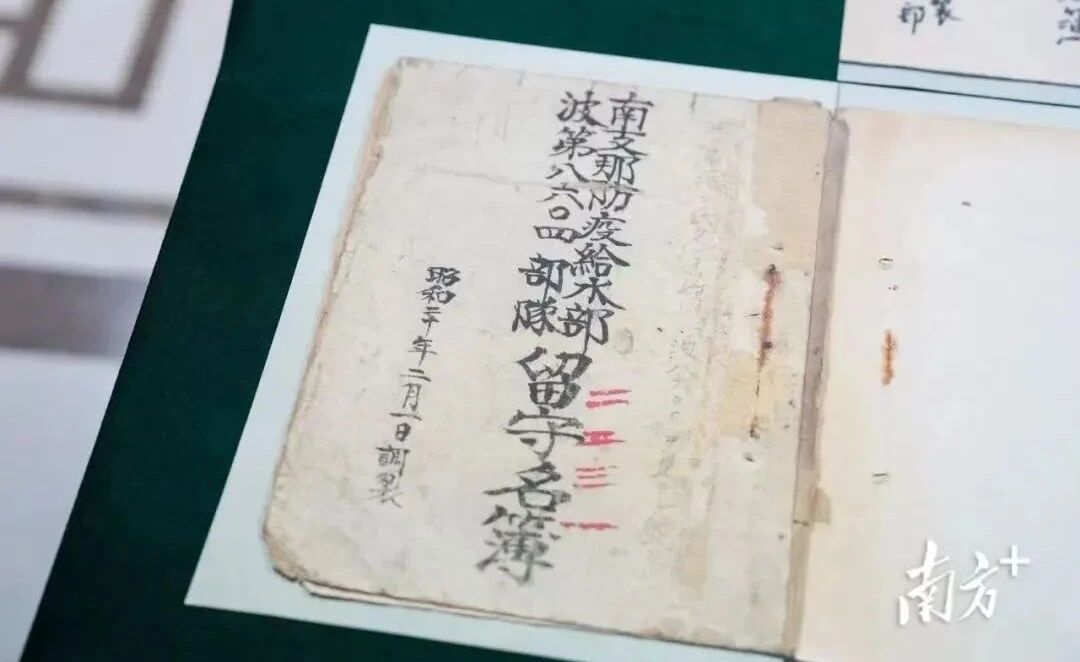 南支那防疫給水部
波第八六〇四部隊留守名簿
二五三一
昭和二十年二月一日調製
部製
簿
南方+